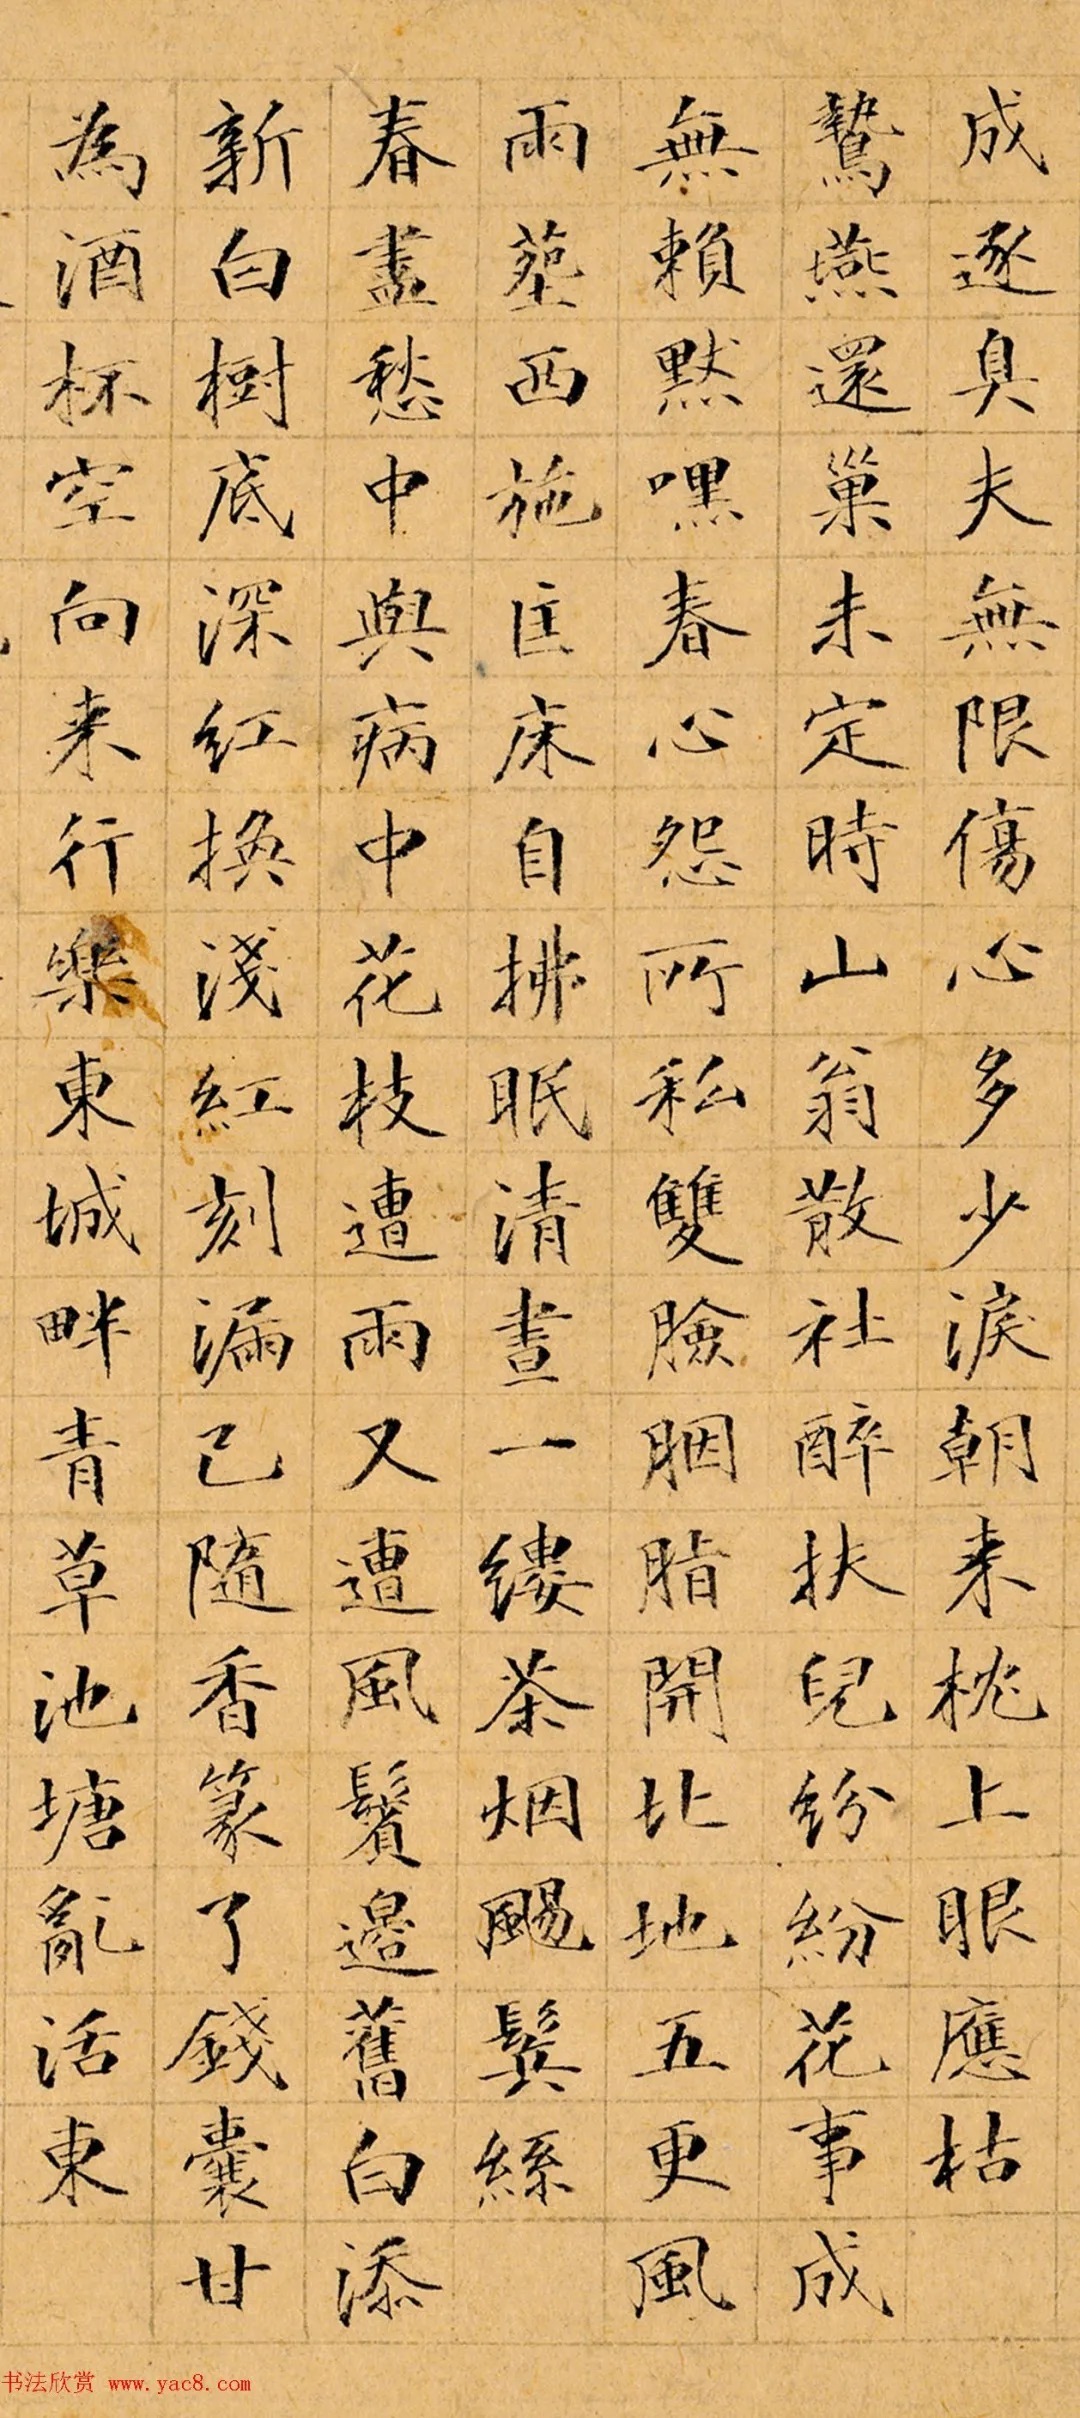 成逐臭夫無限傷心多少淚朝来枕上眼應枯
鶩燕還巢未定時山翁散社醉扶兒紛紛花事成
無賴默嘿春心怨所私雙臉胭脂開北地五更風
雨葬西施匡床自拂眠清晝一縷茶烟颺鬂絲
春盡愁中與病中花枝遭雨又遭風鬢邊舊白添
新白樹底深紅換淺紅刻漏已隨香篆了錢囊甘
為酒杯空向来行樂東城畔青草池塘亂活東
书法欣赏 www.yac8.com